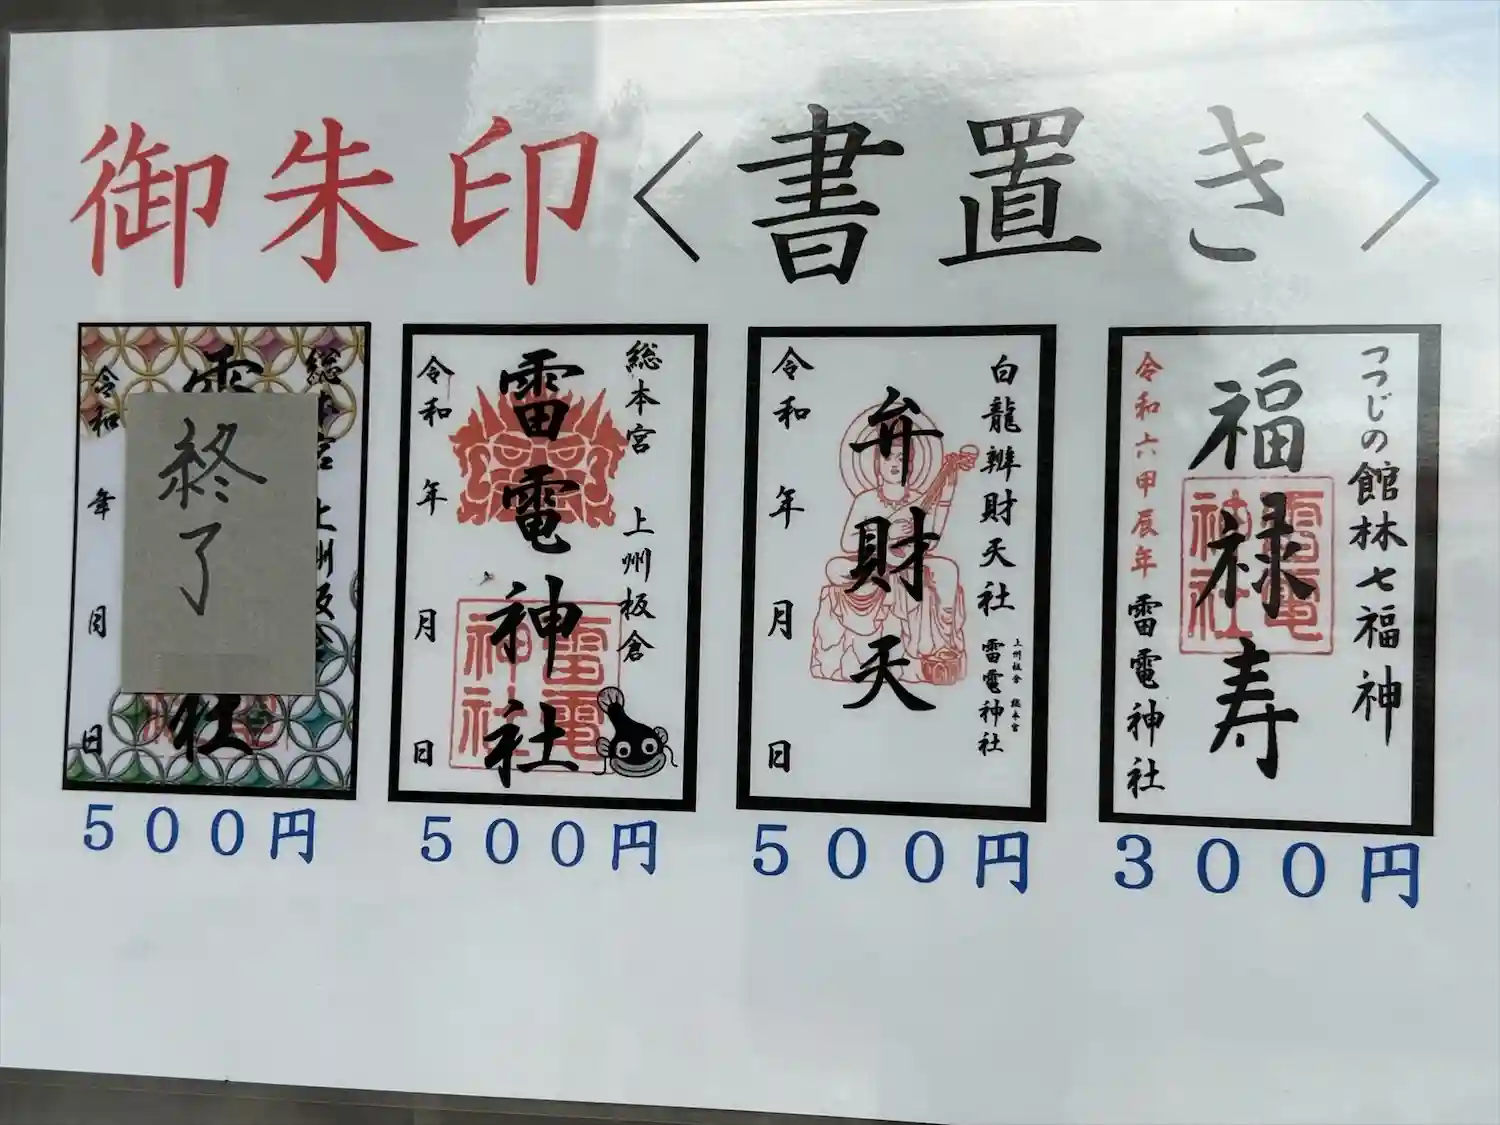 御朱印〈書置き〉
つつじの館林七福神
福禄寿
雷電神社
令和六甲辰年
雷電神社
白龍辨財天社
上州板倉 総本宮
雷電神社
弁財天
令和 年 月 日
総本宮 上州板倉
雷電神社
雷電神社
令和 年 月 日
終了
社
令和 年 月 日
500円
500円
500円
300円